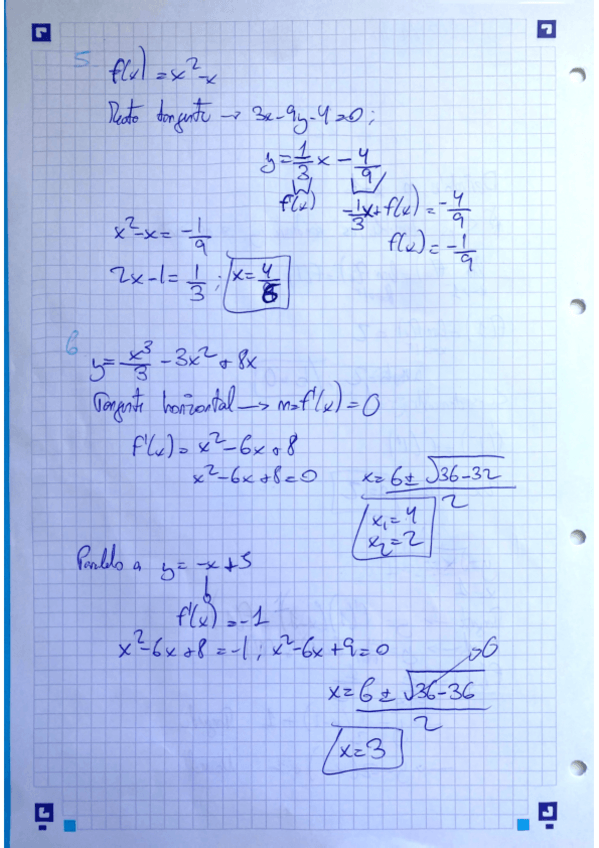 5
f(x) = x² - x
Recta tangente → 3x - 9y - 4 = 0;
y = 1/3 x - 4/9
f'(x)
-1/3 x + f(x) = -4/9
f(x) = -1/9
x² - x = -1/9
2x - 1 = 1/3 ; x = 4/6
6
y = x³/3 - 3x² + 8x
Tangente horizontal → m = f'(x) = 0
f'(x) = x² - 6x + 8
x² - 6x + 8 = 0
x = (6 ± √(36 - 32))/2
x₁ = 4
x₂ = 2
Paralelo a y = -x + 5
f'(x) = -1
x² - 6x + 8 = -1 ; x² - 6x + 9 = 0
x = (6 ± √(36 - 36))/2 → 0
x = 3